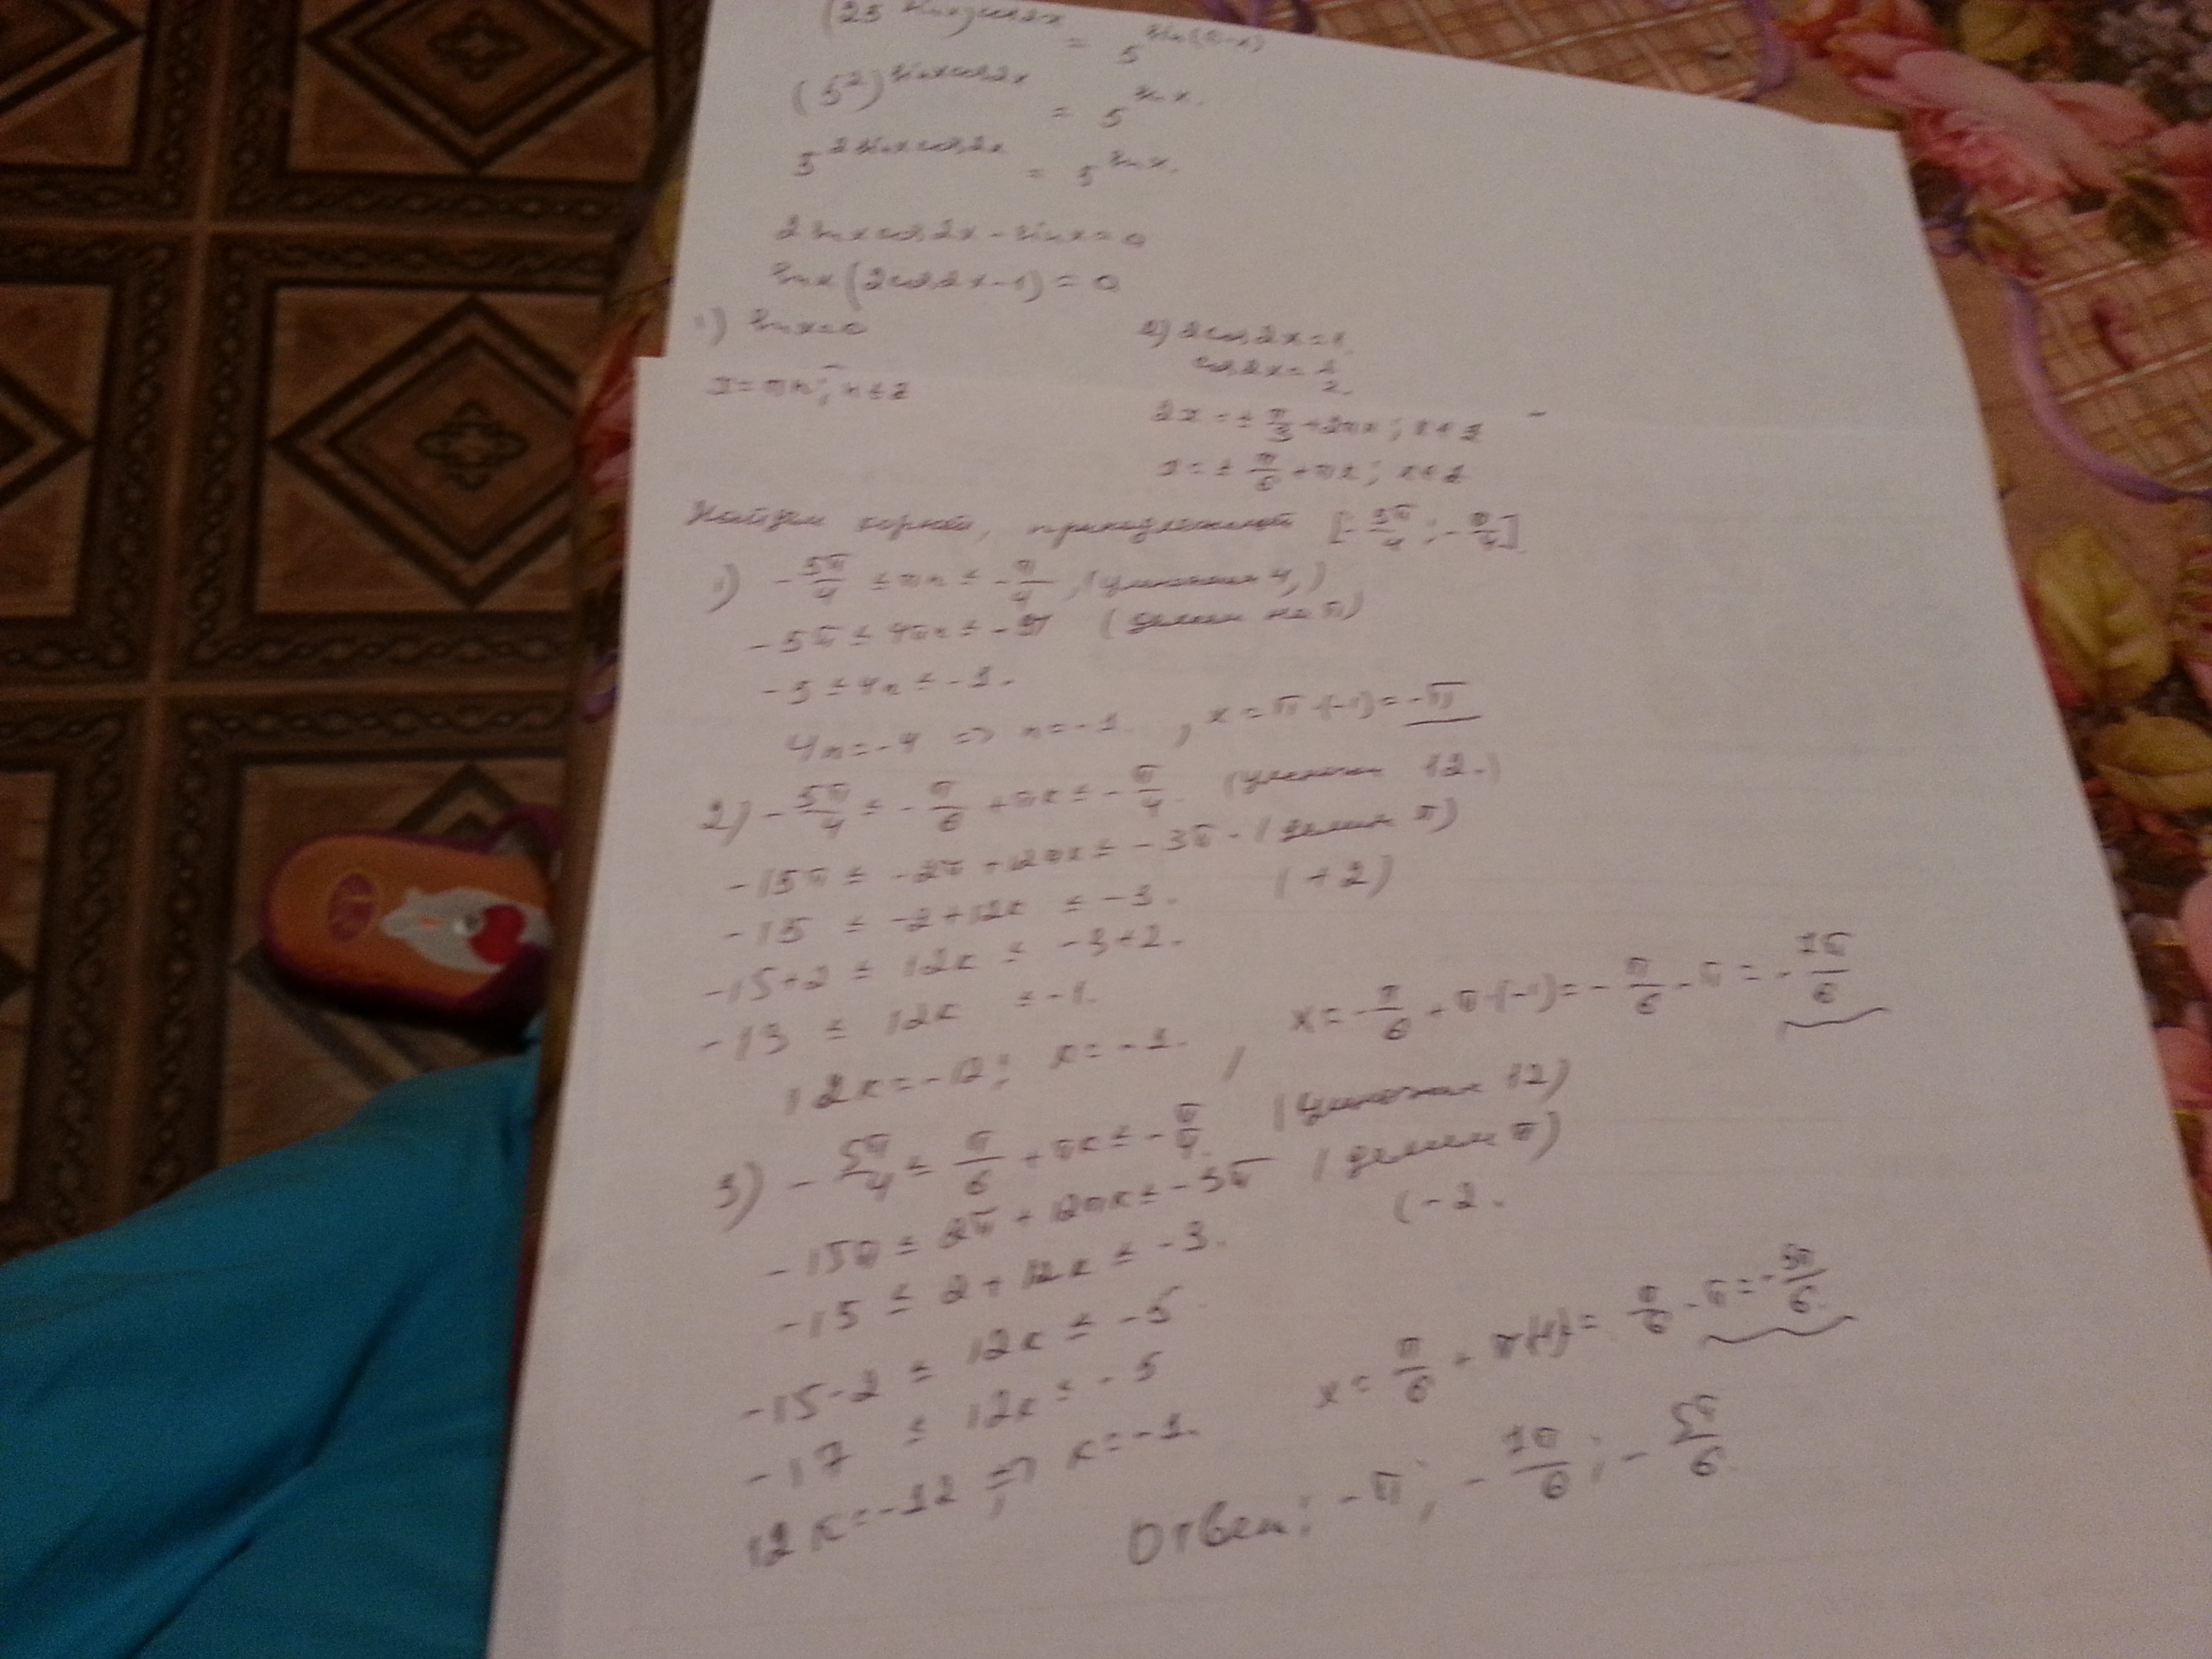 = 5^{sin(π-x)}
(5²)^{sinxcos2x} = 5^{sinx}.
5^{2sinxcos2x} = 5^{sinx}.
2sinxcos2x - sinx = 0
sinx(2cos2x-1) = 0
1) sinx=0
x=πn; n∈Z
2) 2cos2x=1
cos2x=1/2.
2x=±π/3+2πk; k∈Z
x=±π/6+πk; k∈Z
Найдем корней, [-5π/4; -π/4]
1) -5π/4 ≤ πn ≤ -π/4, (умножим 4,)
-5π ≤ 4πn ≤ -π (делим на π)
-5 ≤ 4n ≤ -1.
4n=-4 => n=-1, x=π·(-1)=-π
2) -5π/4 ≤ -π/6+πk ≤ -π/4 (умножим 12.)
-15π ≤ -2π+12πk ≤ -3π (делим π)
-15 ≤ -2+12k ≤ -3. (+2)
-15+2 ≤ 12k ≤ -3+2.
-13 ≤ 12k ≤ -1.
12k=-12; k=-1. , x=-π/6+π·(-1)=-π/6-π=-7π/6
3) -5π/4 ≤ π/6+πk ≤ -π/4. (умножим 12)
-15π ≤ 2π+12πk ≤ -3π (делим π)
-15 ≤ 2+12k ≤ -3. (-2.
-15-2 ≤ 12k ≤ -5.
-17 ≤ 12k ≤ -5
12k=-12 => k=-1. x=π/6+π(-1)=π/6-π=-5π/6.
Ответ: -π; -7π/6; -5π/6.